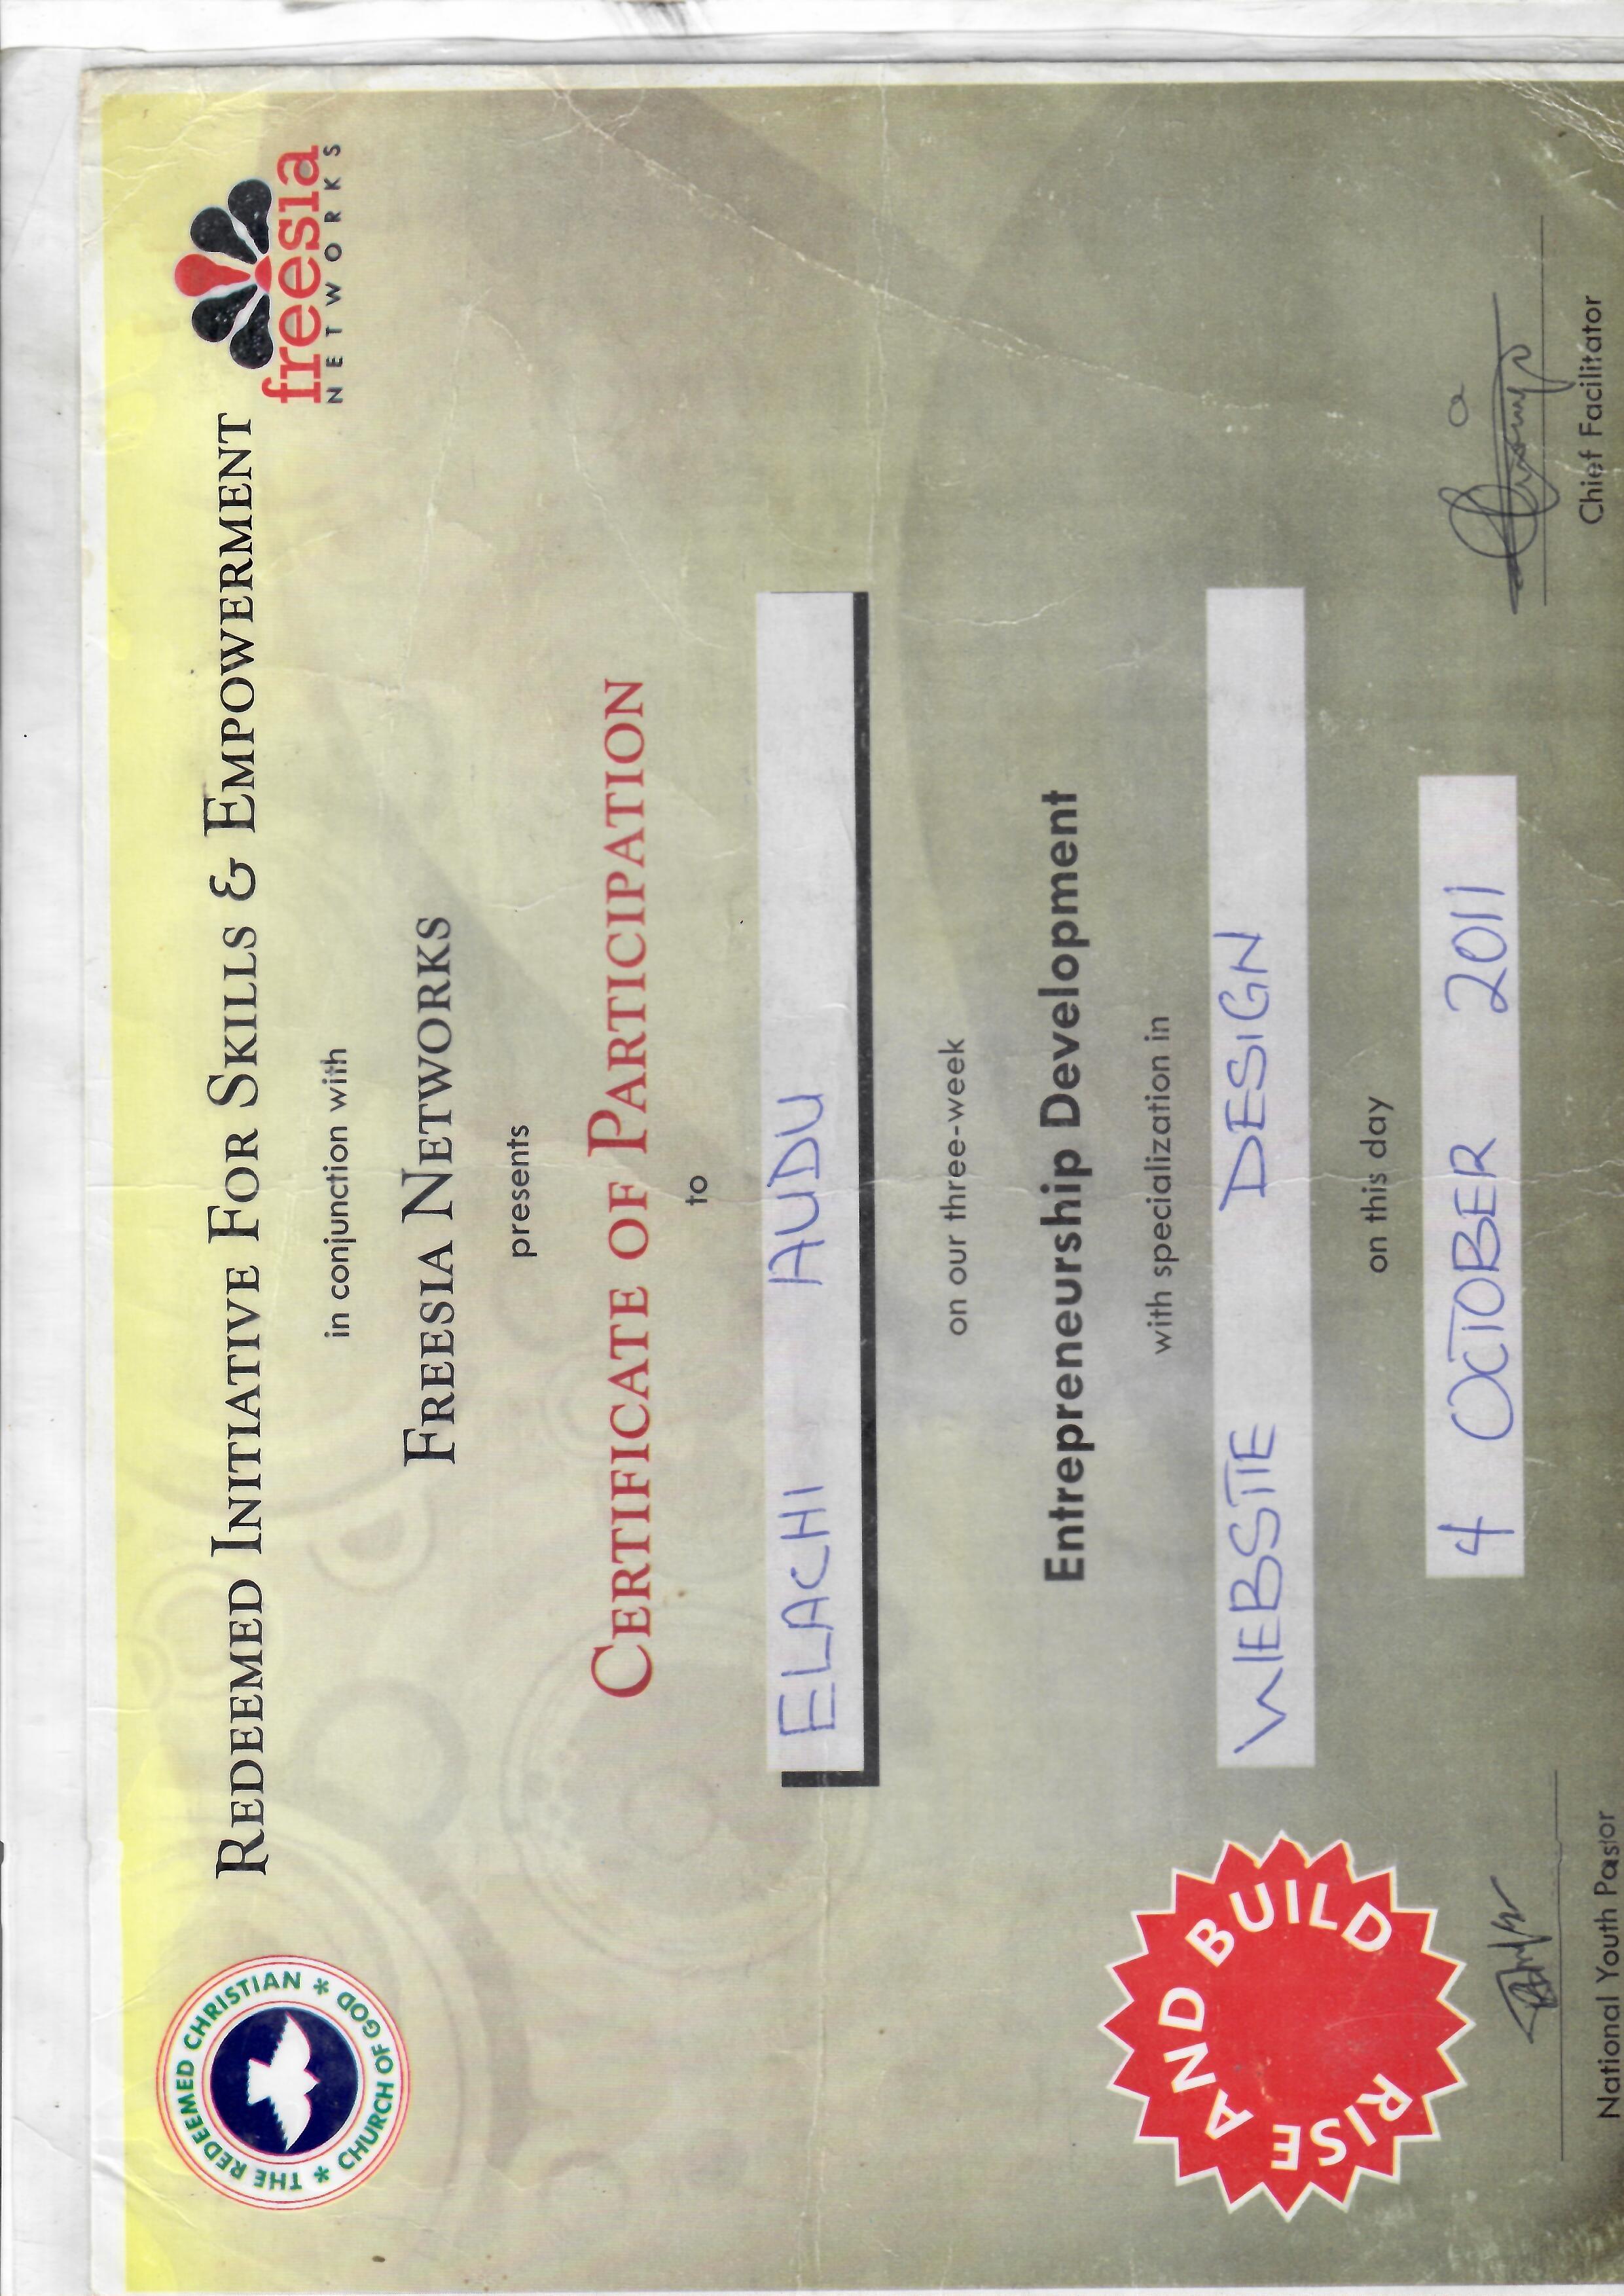 REDEEMED INITIATIVE FOR SKILLS & EMPOWERMENT
THE REDEEMED CHRISTIAN * CHURCH OF GOD *
freesia
NETWORKS
in conjunction with
FREESIA NETWORKS
presents
CERTIFICATE OF PARTICIPATION
to
ELACHI AUDU
on our three-week
Entrepreneurship Development
with specialization in
WEBSTIE DESIGN
on this day
4 OCTOBER 2011
RISE AND BUILD
National Youth Pastor
Chief Facilitator